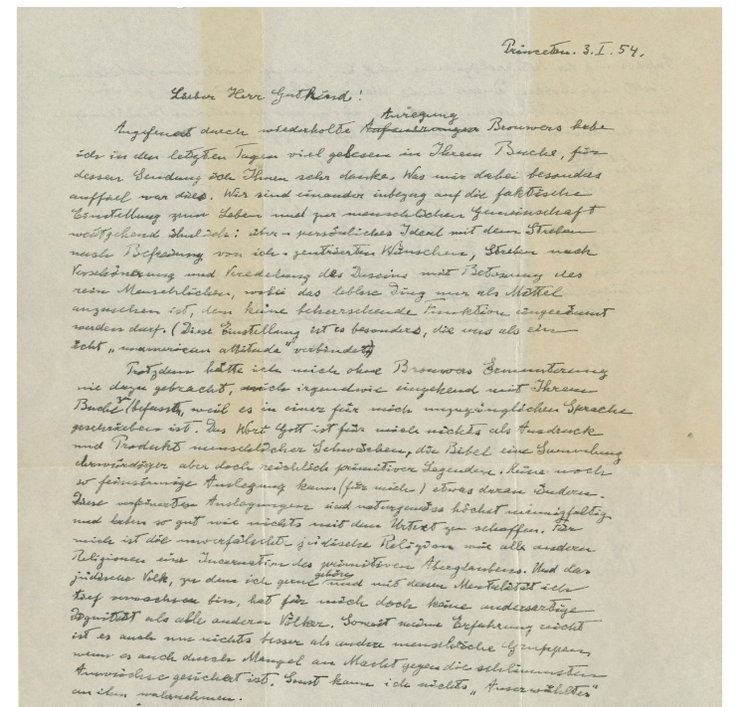 Princeton. 3. I. 54.
Lieber Herr Gutkind!
Anregung
Angefeuert durch wiederholte Brouwers habe
ich in den letzten Tagen viel gelesen in Ihrem Buche, für
dessen Sendung ich Ihnen sehr danke. Was mir dabei besonders
auffiel war dies. Wir sind einander inbezug auf die faktische
Einstellung zum Leben und zur menschlichen Gemeinschaft
weitgehend ähnlich: über-persönliches Ideal mit dem Streben
nach Befreiung von ich-zentrierten Wünschen, Streben nach
Verschönerung und Veredelung des Daseins mit Betonung des
rein Menschlichen, wobei das leblose Ding nur als Mittel
anzusehen ist, dem keine beherrschende Funktion eingeräumt
werden darf. (Diese Einstellung ist es besonders, die uns als ein
echt „unamerican attitude" verbindet)
Trotzdem hätte ich mich ohne Brouwers Ermunterung
nie dazu gebracht, mich irgendwie eingehend mit Ihrem
Buche zu befassen, weil es in einer für mich unzugänglichen Sprache
geschrieben ist. Das Wort Gott ist für mich nichts als Ausdruck
und Produkt menschlicher Schwächen, die Bibel eine Sammlung
ehrwürdiger aber doch reichlich primitiver Legenden. Keine noch
so feinsinnige Auslegung kann (für mich) etwas daran ändern.
Diese verfeinerten Auslegungen sind naturgemäss höchst mannigfaltig
und haben so gut wie nichts mit dem Urtext zu schaffen. Für
mich ist die unverfälschte jüdische Religion wie alle anderen
Religionen eine Incarnation des primitiven Aberglaubens. Und das
jüdische Volk, zu dem ich gerne gehöre und mit dessen Mentalität ich
tief verwachsen bin, hat für mich doch keine andersartige
Dignität als alle anderen Völker. Soweit meine Erfahrung reicht
ist es auch um nichts besser als andere menschliche Gruppen
wenn es auch durch Mangel an Macht gegen die schlimmsten
Auswüchse gesichert ist. Sonst kann ich nichts „Auserwähltes"
an ihm wahrnehmen.